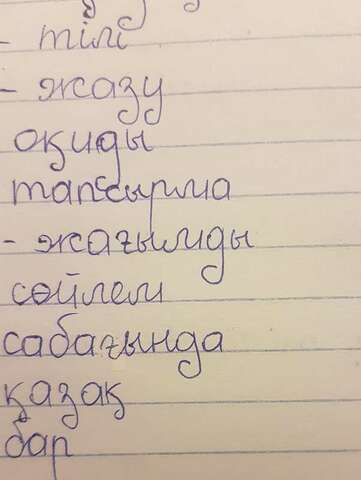 - тілі
- жазу
оқиды
тапсырма
- жағымды
сөйлем
сабағында
қазақ
бар